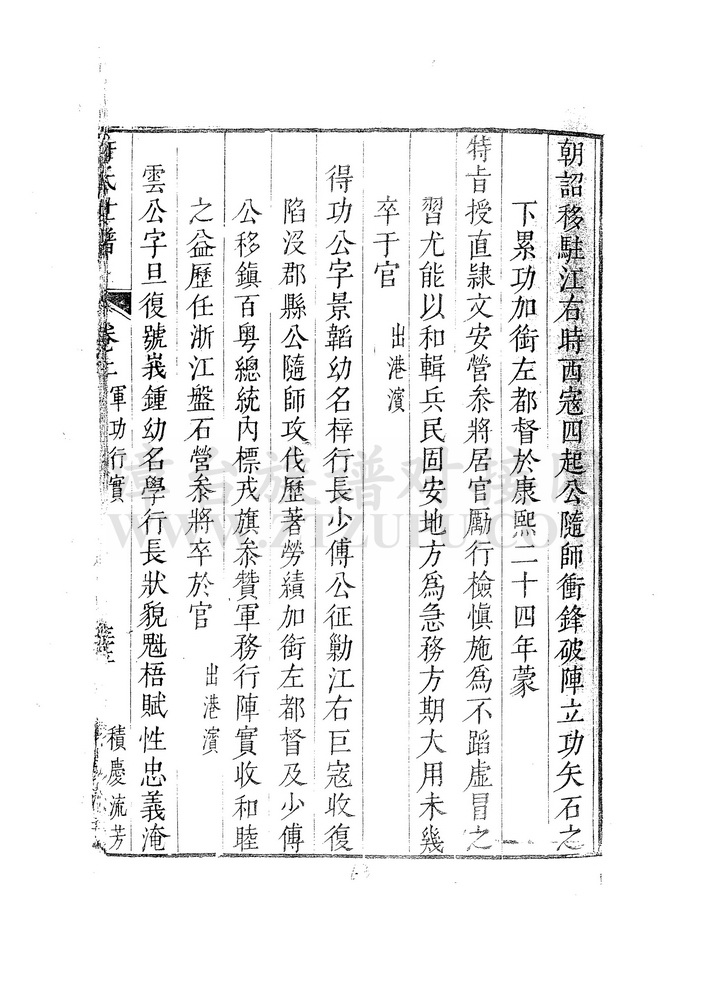 朝詔移駐江右時西寇四起公隨師衝鋒破陣立功矢石之
下累功加銜左都督於康熙二十四年蒙
特旨授直隷文安營叅將居官勵行檢愼施爲不蹈虛冒之
習尤能以和輯兵民固安地方爲急務方期大用未幾
卒于官 出港濱
得功公字景韜幼名梓行長少傅公征勦江右巨寇收復
陷沒郡縣公隨師攻伐歷著勞績加銜左都督及少傅
公移鎮百粤總統內標戎旗叅贊軍務行陣實收和睦
之益歷任浙江盤石營叅將卒於官 出港濱
雲公字旦復號峩鍾幼名學行長狀貌魁梧賦性忠義淹
氏世譜 卷二 軍功行實 積慶流芳
www.ZTZUPU.COM